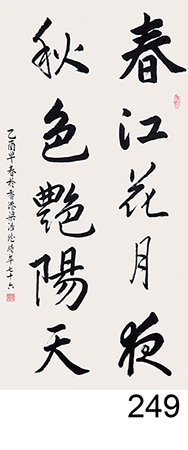 春江花月夜
秋色艷陽天
乙酉早春於香港梁浩然時年七十六
249